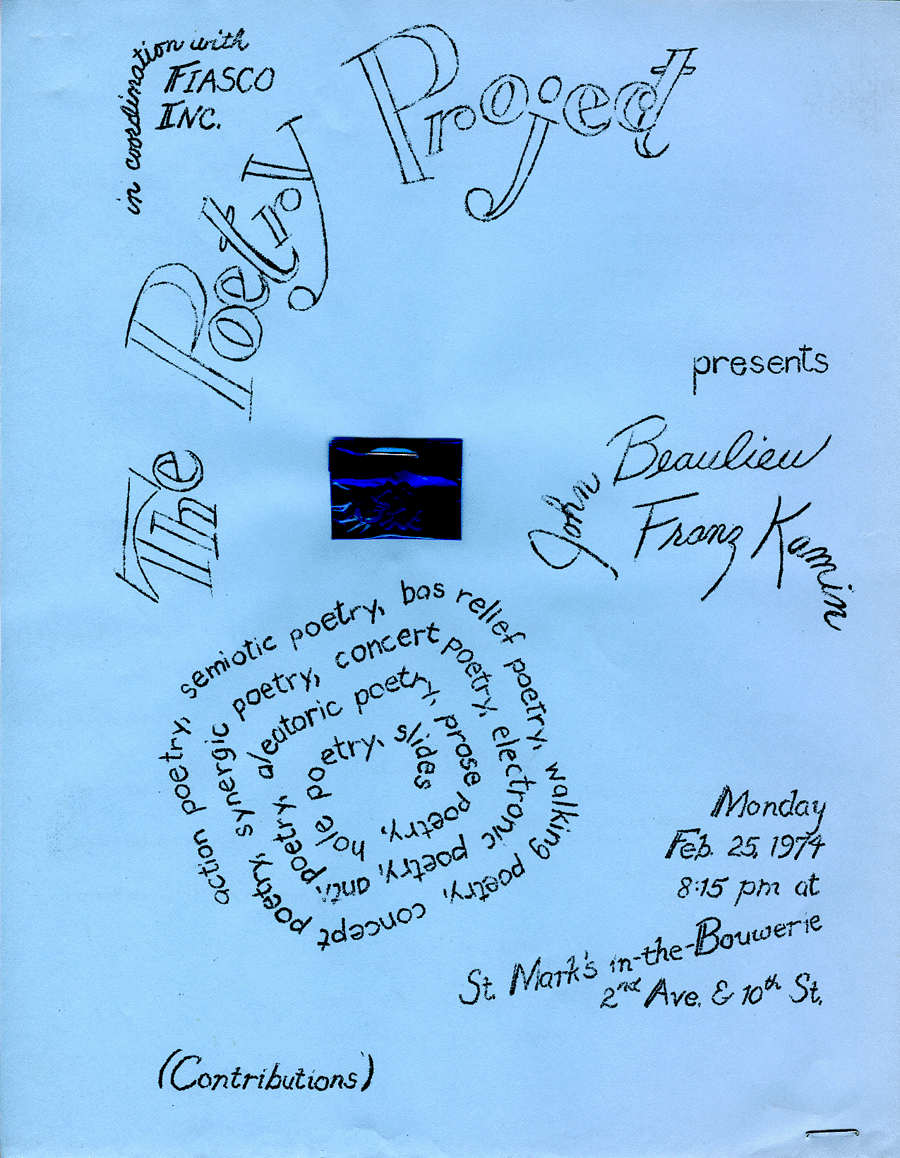 in coordination with
FIASCO
INC.
The Poetry Project
presents
John Beaulieu
Franz Kamin
action poetry, semiotic poetry, bas relief poetry, walking poetry, concept poetry, synergic poetry, concert poetry, electronic poetry, anti, poetry, aleatoric poetry, prose poetry, hole poetry, slides
Monday
Feb. 25, 1974
8:15 pm at
St. Mark's in-the-Bouwerie
2nd Ave. & 10th St.
(Contributions)